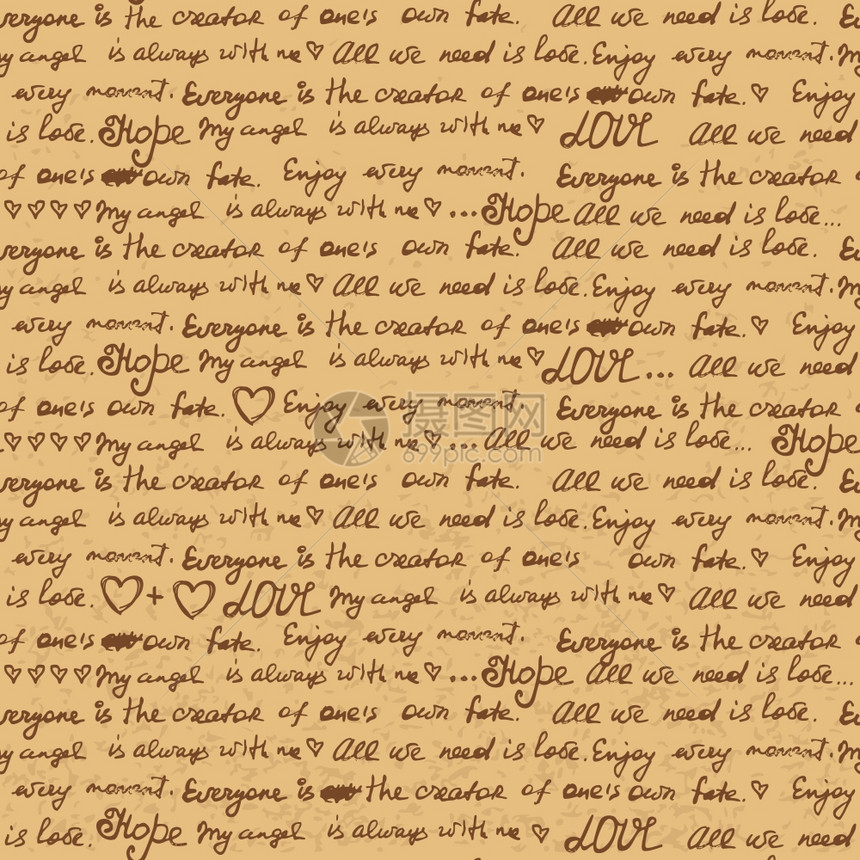 everyone is the creator of one's own fate. All we need is love. Ev
my angel is always with me♡ All we need is love. Enjoy every moment. My
every moment. Everyone is the creator of one's own fate.♡ Enjoy
is love. Hope My angel is always with me♡ LOVE All we need
of one's own fate. Enjoy every moment. Everyone is the creator o
♡♡♡♡My angel is always with me♡...Hope All we need is love...
everyone is the creator of one's own fate. All we need is love. Ev
my angel is always with me♡ All we need is love. Enjoy every moment. My
every moment. Everyone is the creator of one's own fate.♡ Enjoy
is love. Hope My angel is always with me♡ LOVE... All we need
of one's own fate.♡ Enjoy every moment. Everyone is the creator o
♡♡♡♡My angel is always with me♡...All we need is love... Hope
摄图网
699pic.com
everyone is the creator of one's own fate. All we need is love. Ev
my angel is always with me♡ All we need is love. Enjoy every moment. My
every moment. Everyone is the creator of one's own fate.♡ Enjoy
is love.♡+♡ LOVE My angel is always with me♡ All we need
of one's own fate. Enjoy every moment. Everyone is the creator o
♡♡♡♡My angel is always with me♡...Hope All we need is love...
everyone is the creator of one's own fate. All we need is love. Ev
my angel is always with me♡ All we need is love. Enjoy every moment. My
every moment. Everyone is the creator of one's own fate.♡ Enjoy
is love. Hope My angel is always with me♡ LOVE All we need